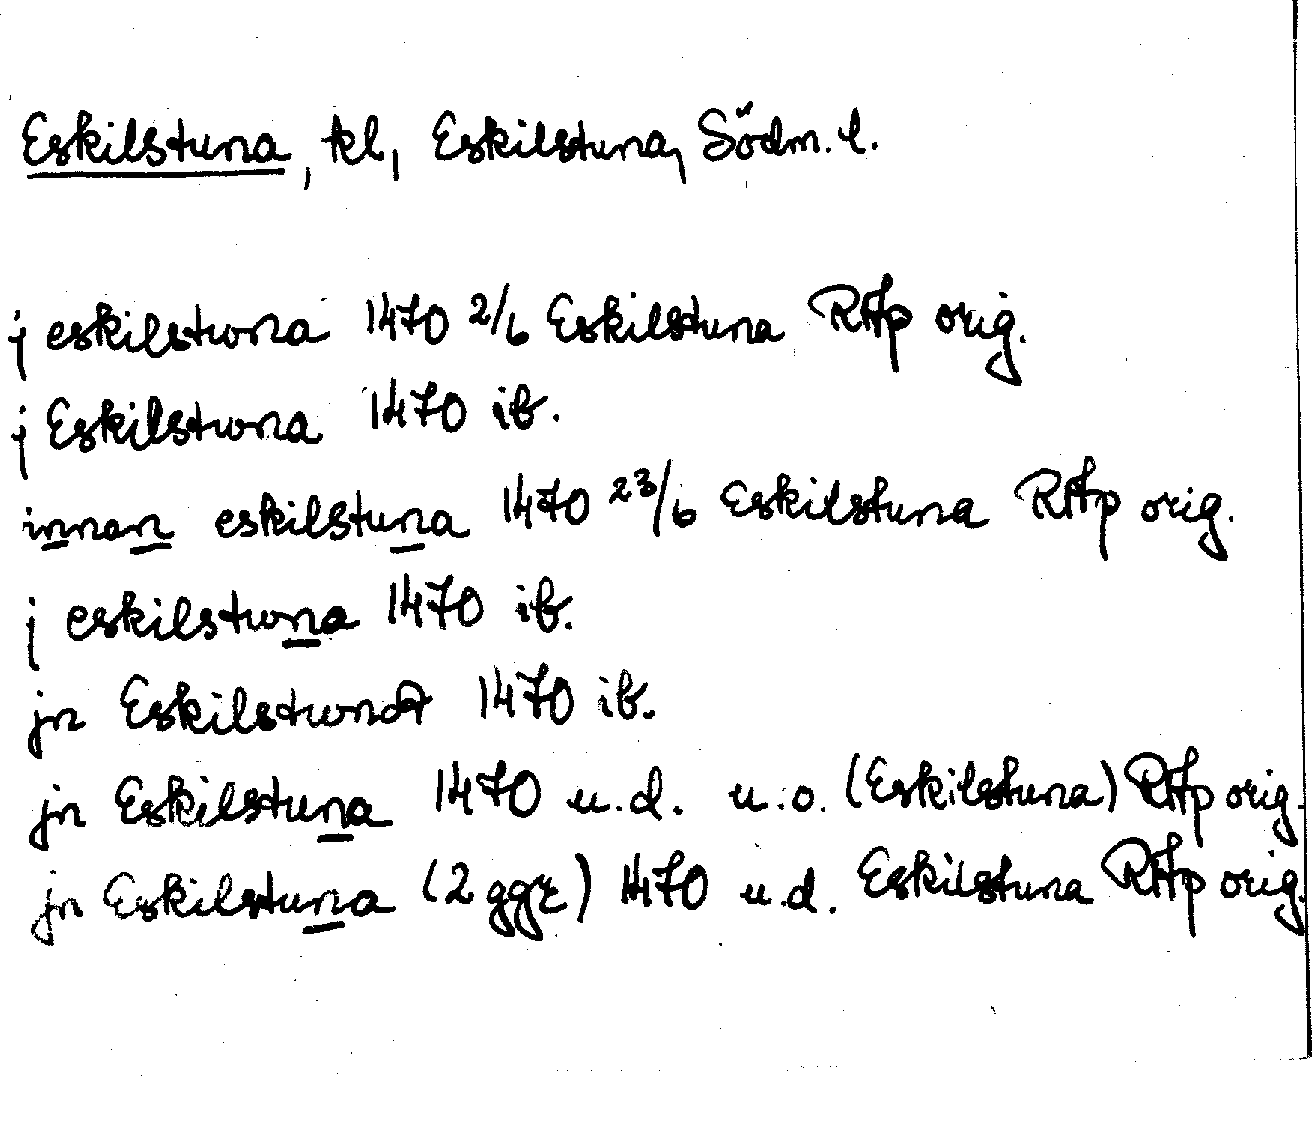 Eskilstuna, kl, Eskilstuna, Södm. l.
j eskilstwna 1470 2/6 Eskilstuna RAp orig.
j Eskilstwna 1470 ib.
innan eskilstuna 1470 23/6 Eskilstuna RAp orig.
j eskilstwna 1470 ib.
jn Eskilstwna 1470 ib.
jn Eskilstuna 1470 u.d. u.o. (Eskilstuna) RAp orig.
jn Eskilstuna (2 ggr) 1470 u.d. Eskilstuna RAp orig.